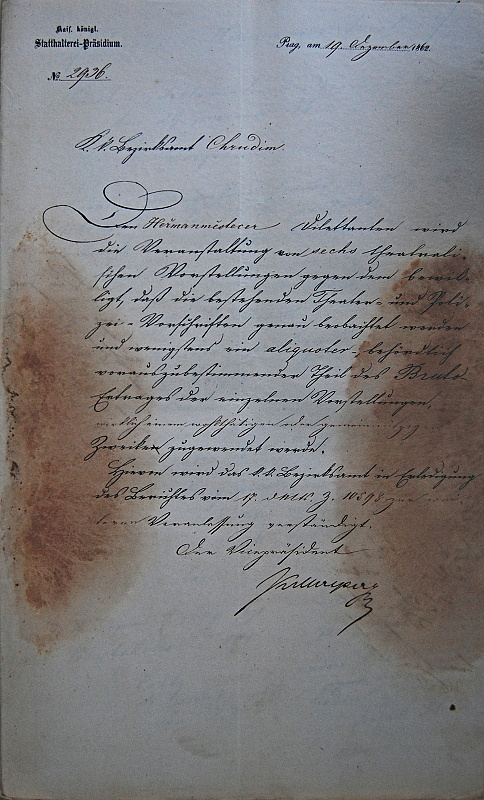 Kais. königl.
Statthalterei-Präsidium.
Prag, am 19. Dezember 1862.
№ 2936.
K. k. Bezirksamt Chrudim.
Den Heřmanměstecer Dilettanten wird
die Veranstaltung von sechs theatrali-
schen Vorstellungen gegen dem bewil-
ligt, daß die bestehenden Theater- und Poli-
zei-Vorschriften genau beobachtet werden
und wenigstens ein aliquoter, behördlich
vorauszubestimmender Theil des Brutto
Ertrages der einzelnen Vorstellungen,
einem wohlthätigen oder gemeinnützig
Zwecken zugewendet werde.
Hievon wird das k. k. Bezirksamt in Erledigung
des Berichtes vom 17. d. M. Z. 10598 zur wei-
teren Veranlassung verständigt.
Der Vicepräsident